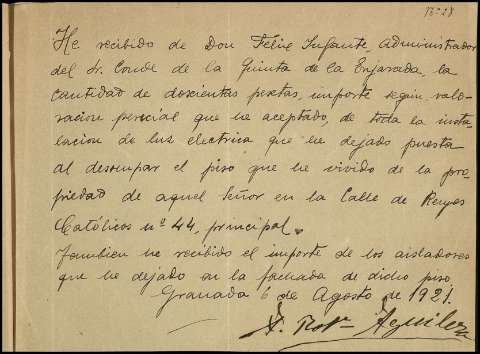 He recibido de Don Félix Infante, administrador
del Sr. Conde de la Quinta de la Enjarada, la
cantidad de doscientas pesetas, importe segun valo-
racion pericial que he aceptado, de toda la insta-
lacion de luz electrica que he dejado puesta
al desocupar el piso que he vivido de la pro-
piedad de aquel Señor en la Calle de Reyes
Católicos nº 44, principal.
Tambien he recibido el importe de los aisladores
que he dejado en la fachada de dicho piso.
Granada 6 de Agosto de 1921.
Aguilera